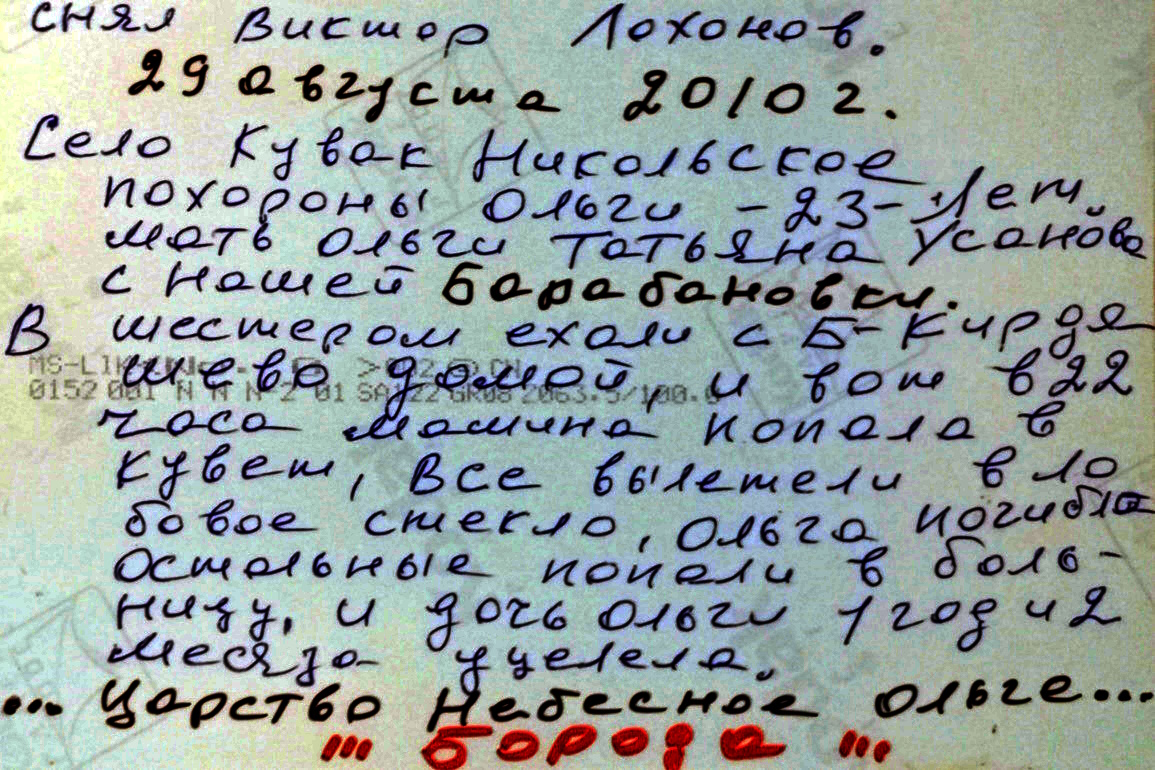 снял Виктор Лохонов.
29 августа 2010 г.
Село Кувак Никольское
похороны Ольги -23- лет.
мать Ольги Татьяна Усанова
с нашей Барабановки.
В шестером ехали с Б-Кирдя
шево домой, и вот в 22
часа машина попала в
кувет, все вылетели в ло
бовое стекло, Ольга погибла
остальные попали в боль-
ницу, и дочь Ольги 1 год и 2
месяца уцелела.
... Царство Небесное Ольге...
"' Борода "'